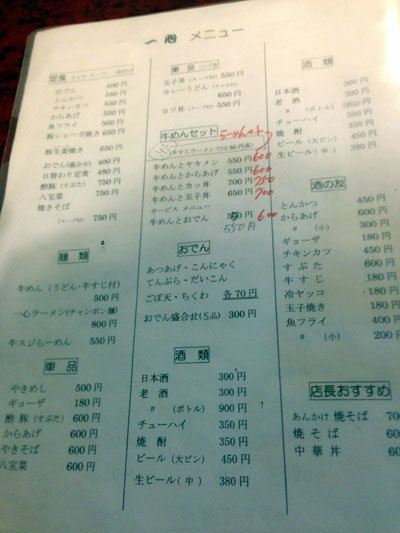 一心 メニュー
定食
おでん 400円
とんかつ 580円
チキンカツ 550円
からあげ 550円
魚フライ 500円
豚ショーガ焼き 650円
豚生姜焼き 650円
おでん(盛合せ) 400円
日替わり定食 480円
酢豚(すぶた) 750円
八宝菜 750円
焼きそば
(スープ付) 750円
麺類
牛めん(うどん・牛すじ付)
500円
一心ラーメン(チャンポン麺)
800円
牛スジらーめん 550円
単品
やきめし 500円
ギョーザ 180円
酢豚(すぶた) 600円
からあげ 450円
やきそば 600円
八宝菜 600円
単品つづき
玉子丼(スープ付) 550円
カレーうどん(ライス付)
650円
カツ丼(スープ付) 650円
牛めんセット らーめんセット
(牛すじラーメンでは80円高)
牛めんとヤキメシ 550円 600
牛めんとからあげ 550円 600
牛めんとカツ丼 700円 750
牛めんと玉子丼 650円 700
サービスメニュー
牛めんとおでん 550円 600
おでん
あつあげ・こんにゃく
てんぷら・だいこん
ごぼ天・ちくわ 各70円
おでん盛合せ(5品) 300円
酒類
日本酒 300円
老酒 300円
〃(ボトル) 900円
チューハイ 350円
焼酎 350円
ビール(大ビン) 450円
生ビール(中) 380円
酒類
日本酒 300円
老酒 300円
〃(ボトル)
チューハイ 350円
焼酎 350円
ビール(大ビン) 450円
生ビール(中) 380円
酒の友
とんかつ 450円
からあげ 400円
〃(小) 300円
ギョーザ 180円
チキンカツ 450円
すぶた 600円
牛すじ 180円
冷ヤッコ 180円
玉子焼き 180円
魚フライ 400円
〃(小) 200円
店長おすすめ
あんかけ焼そば
焼そば
中華丼